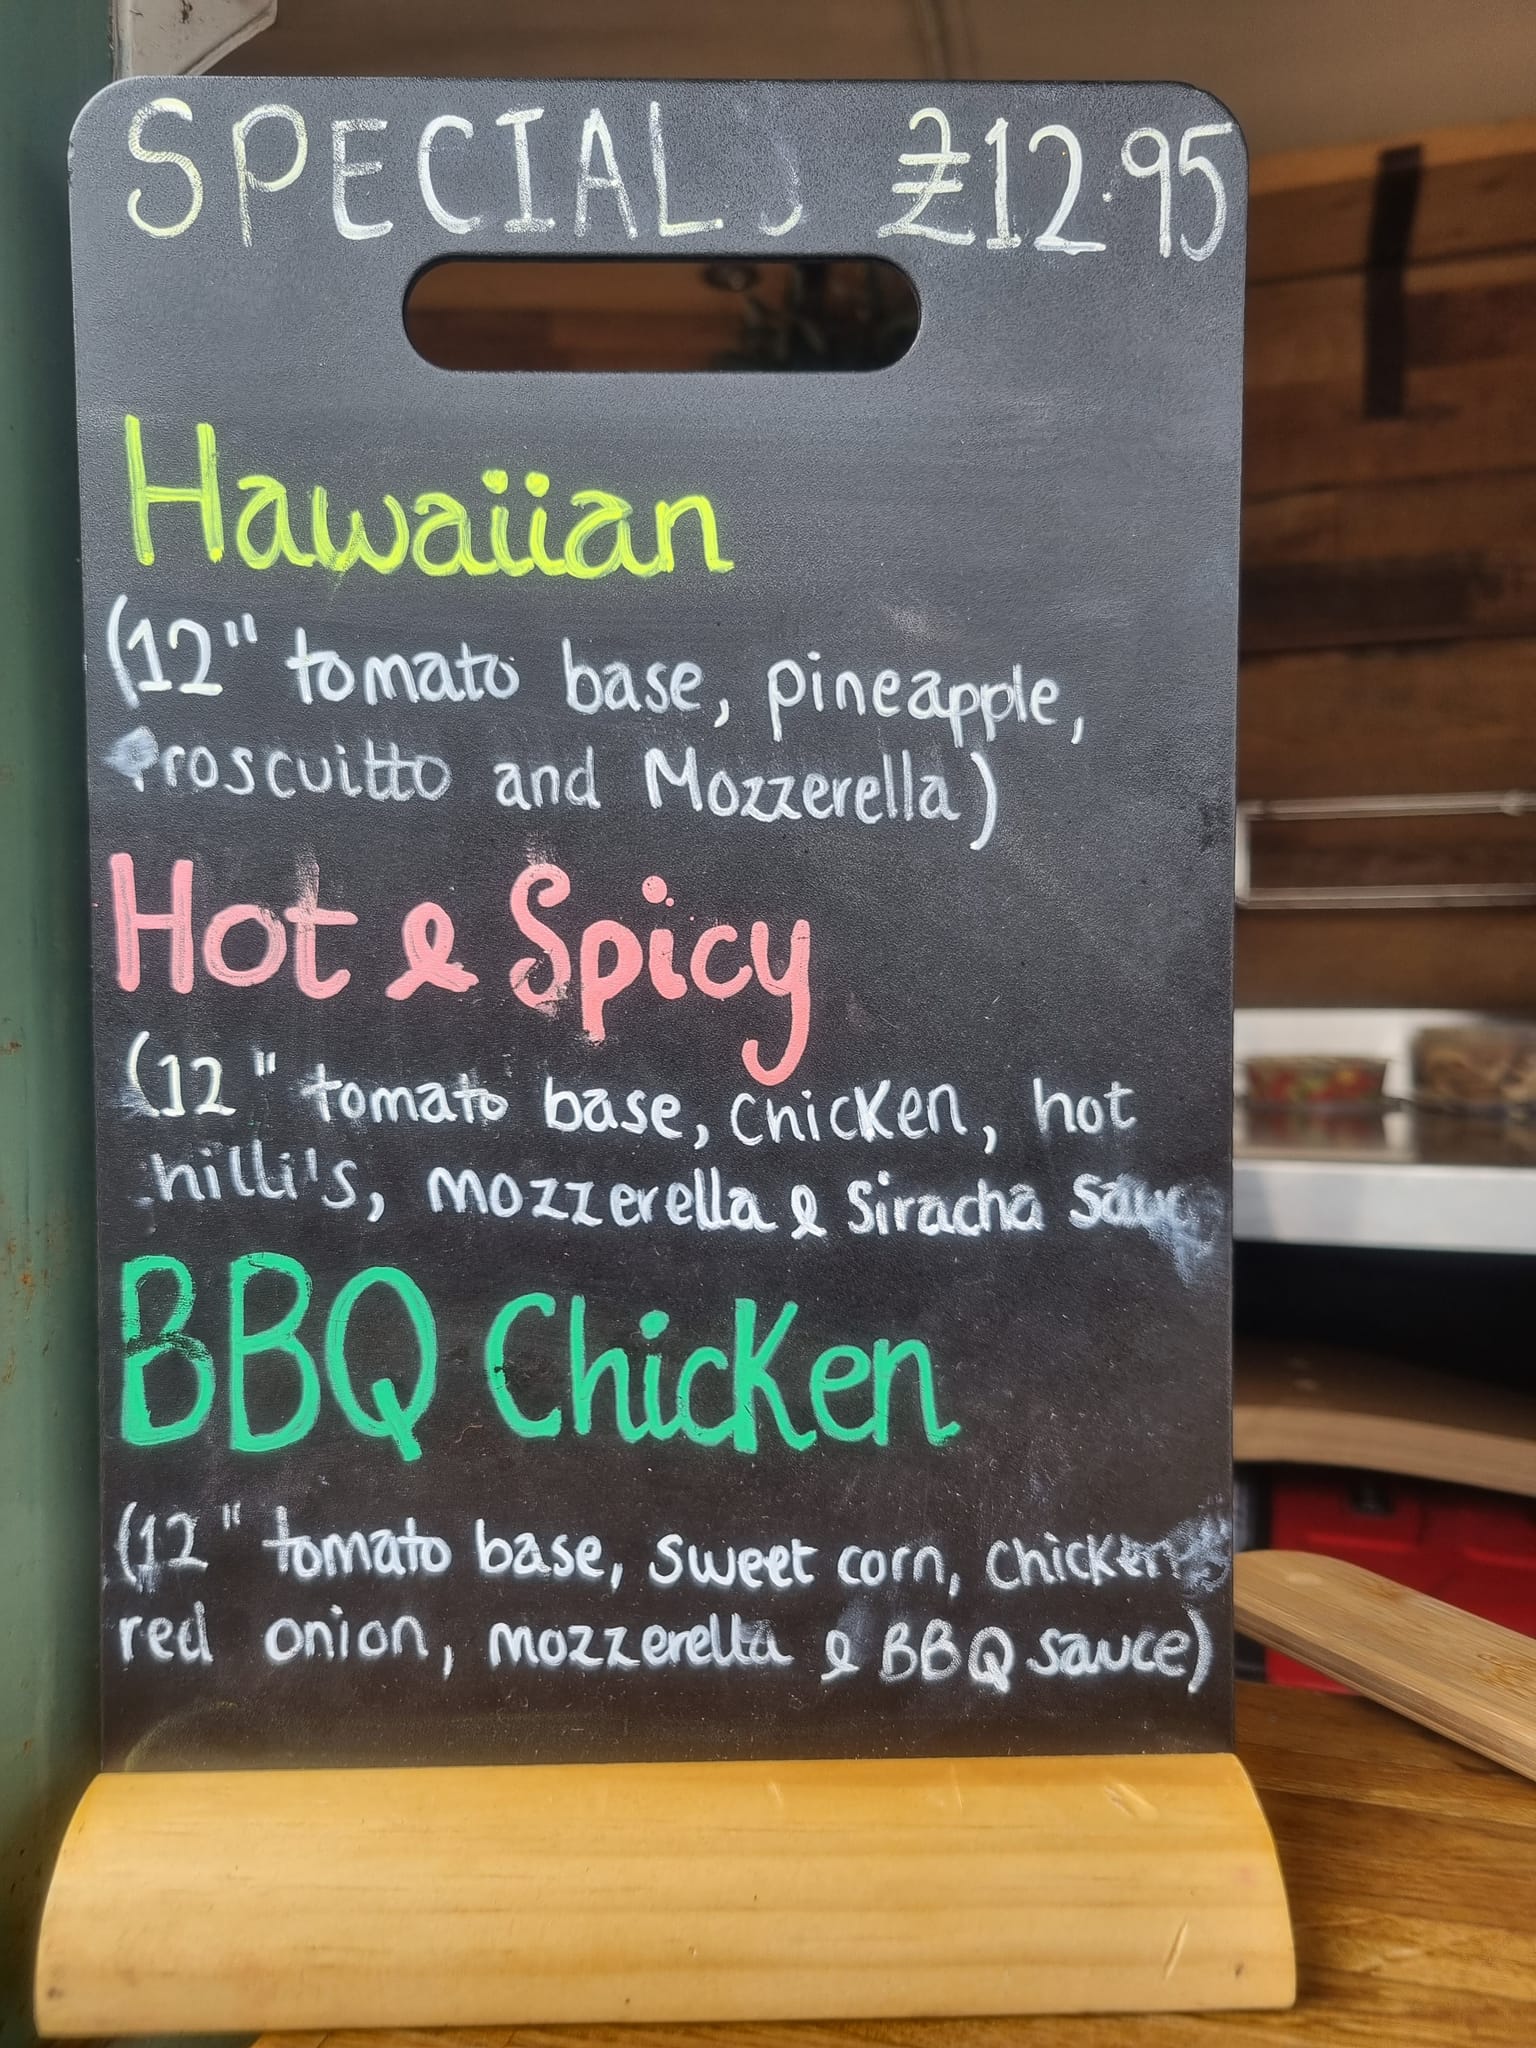 SPECIALS £12.95
Hawaiian
(12" tomato base, pineapple,
Proscuitto and Mozzerella)
Hot & Spicy
(12" tomato base, chicken, hot
hilli's, mozzerella & Siracha Sauc
BBQ Chicken
(12" tomato base, sweet corn, chicken
red onion, mozzerella & BBQ sauce)